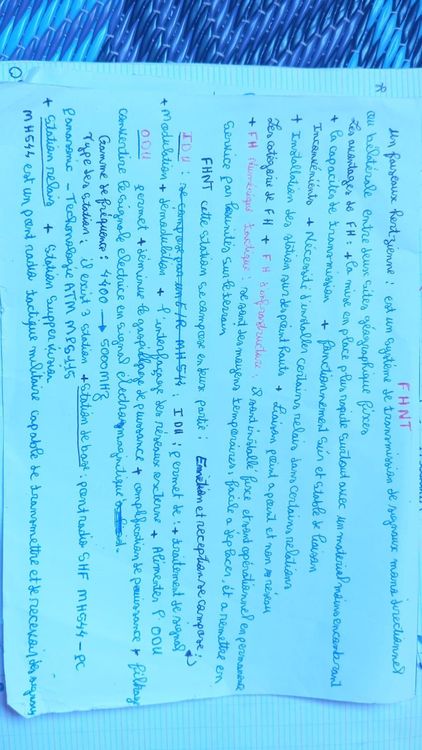 FHNT
un faiseaux hertzienne : est un système de transmission de signaux mono directionnel
ou bilatérale entre deux sites géographique fixes
Les avantages de FH : + la mise en place plus rapide surtout avec un matériel moins encombrant
+ la capacités de transmission + fonctionnement sûr et stable de liaison
Inconvénients + Nécessité d'installer certains relais dans certains relations
+ Installation des station sur des point hauts + Liaison point a point et non réseau
Les catégorie de FH + FH d'infrastructure : il sont installé fixe et sont opérationnel en permanence
+ FH Numérique tactique : se sont des moyens temporaires, facile a deplacer, et a remettre en
service par les unités sur le terrain
FHNT cette station se compose en deux partie : Emission et reception se compose :
IDU : se compose par un E/R MH544 : IDU : permet de : + traitement de signal
+ Modulation + démodulation + l'interfaçage des réseaux externe + Alimenter l'ODU
ODU permet + diminue le gaspillage de puissance + amplification de puissance + filtrage
convertire le signale electrice en signal electromagnetique
Gamme de fréquence : 4400 → 5000 MHz
Type des station : il exist 3 station + Station de base : pont radio SHF MH544 - PC
Panasonic - Technologie ATM MP5545
+ Station relais + Station supper vision
MH544 est un pont radio tactique militaire capable de transmettre et de recevoir des signaux